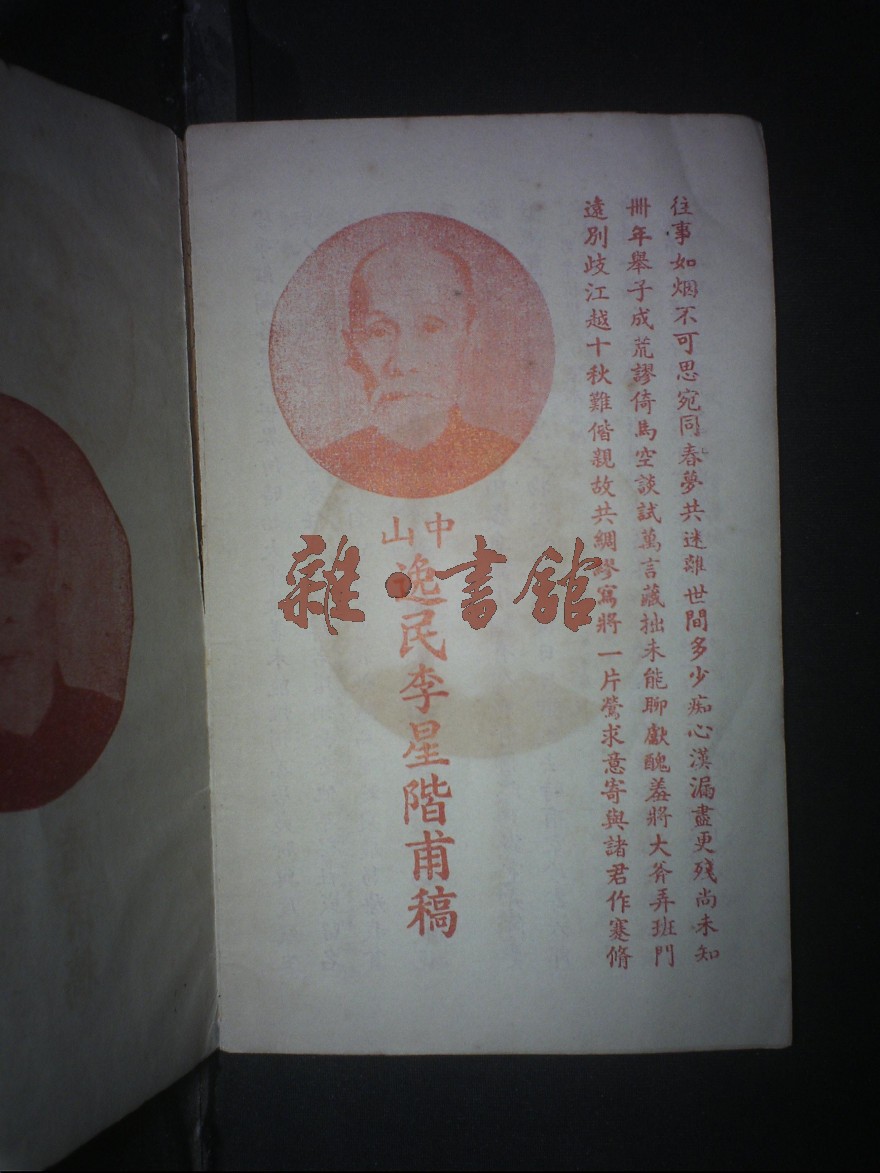 往事如烟不可思宛同春夢共迷離世間多少痴心漢漏盡更殘尚未知
卌年舉子成荒謬倚馬空談試萬言藏拙未能聊獻醜羞將大斧弄班門
遠別歧江越十秋難偕親故共綢繆寫將一片鶯求意寄與諸君作蹇脩
中山
逸民李星階甫稿
雜·書館